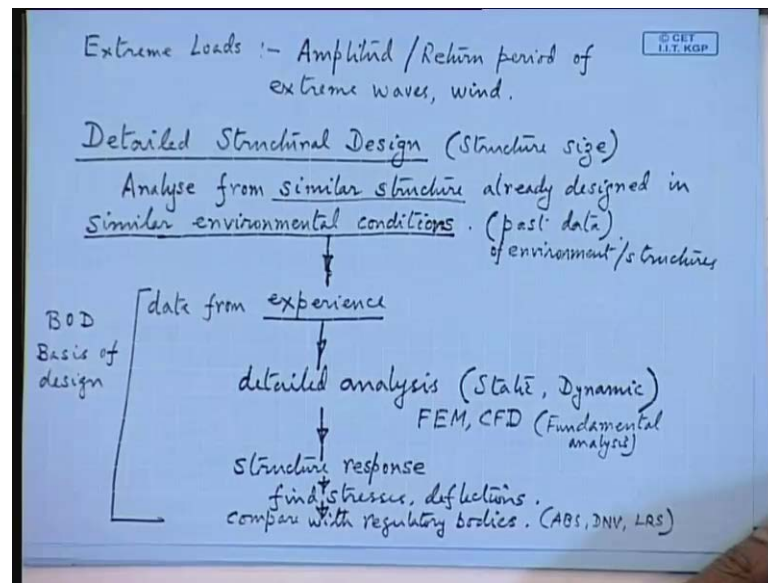 Extreme Loads :- Amplitud / Return period of
extreme waves, wind.
© CET
I.I.T. KGP
Detailed Structural Design (Structure size)
Analyse from similar structure already designed in
similar environmental conditions. (past data)
of environment/structures
data from experience
BOD
Basis of
design
detailed analysis (Static, Dynamic)
FEM, CFD (Fundamental
analysis)
structure response
find stresses, deflections.
compare with regulatory bodies. (ABS, DNV, LRS)